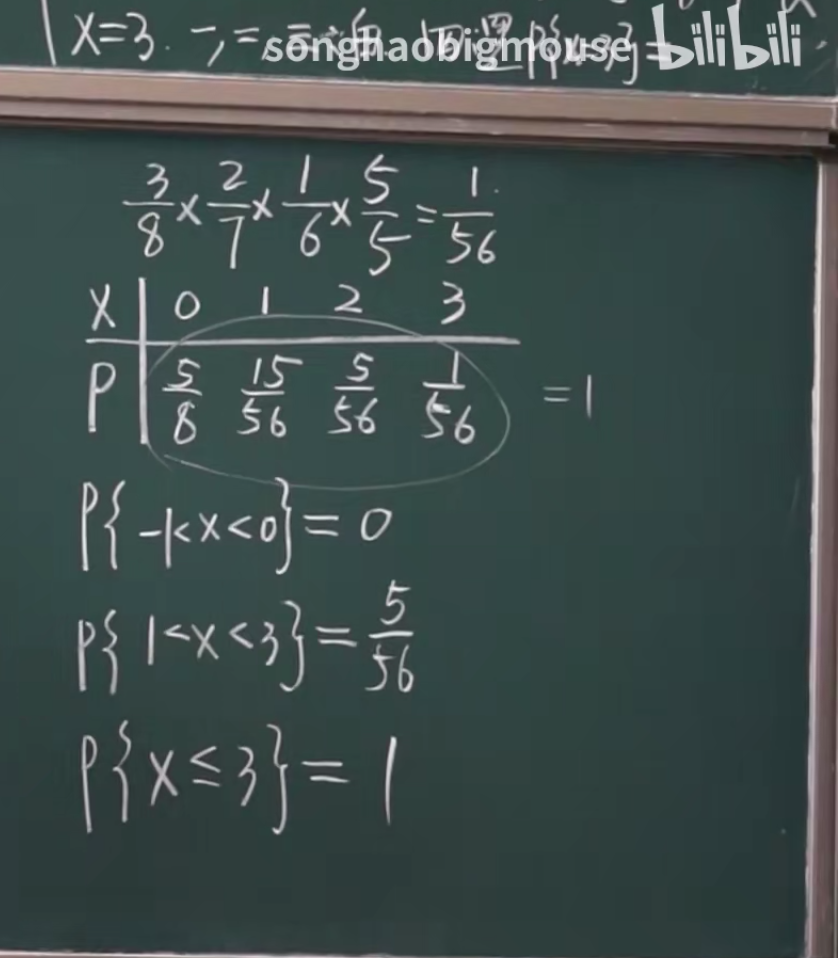 X=3. 一,二
songhaobigmouse bilibili
3/8 × 2/7 × 1/6 × 5/5 = 1/56
X | 0 1 2 3
P | 5/8 15/56 5/56 1/56 = 1
P{-1<X<0} = 0
P{1<X<3} = 5/56
P{X≤3} = 1